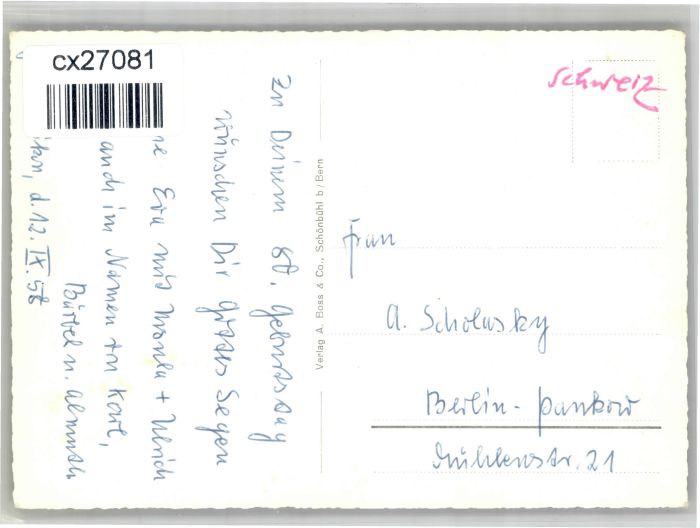 cx27081
Schweiz
Zu Deinem 80. Geburtstag
wünschen Dir Gottes Segen
Eva mit Ursula + Ulrich
auch im Namen von Karl,
Bärbel u. Almuth
d. 12. IX. 58
Verlag A. Boss & Co., Schönbühl b/Bern
Frau
A. Scholwsky
Berlin-Pankow
Mühlenstr. 21